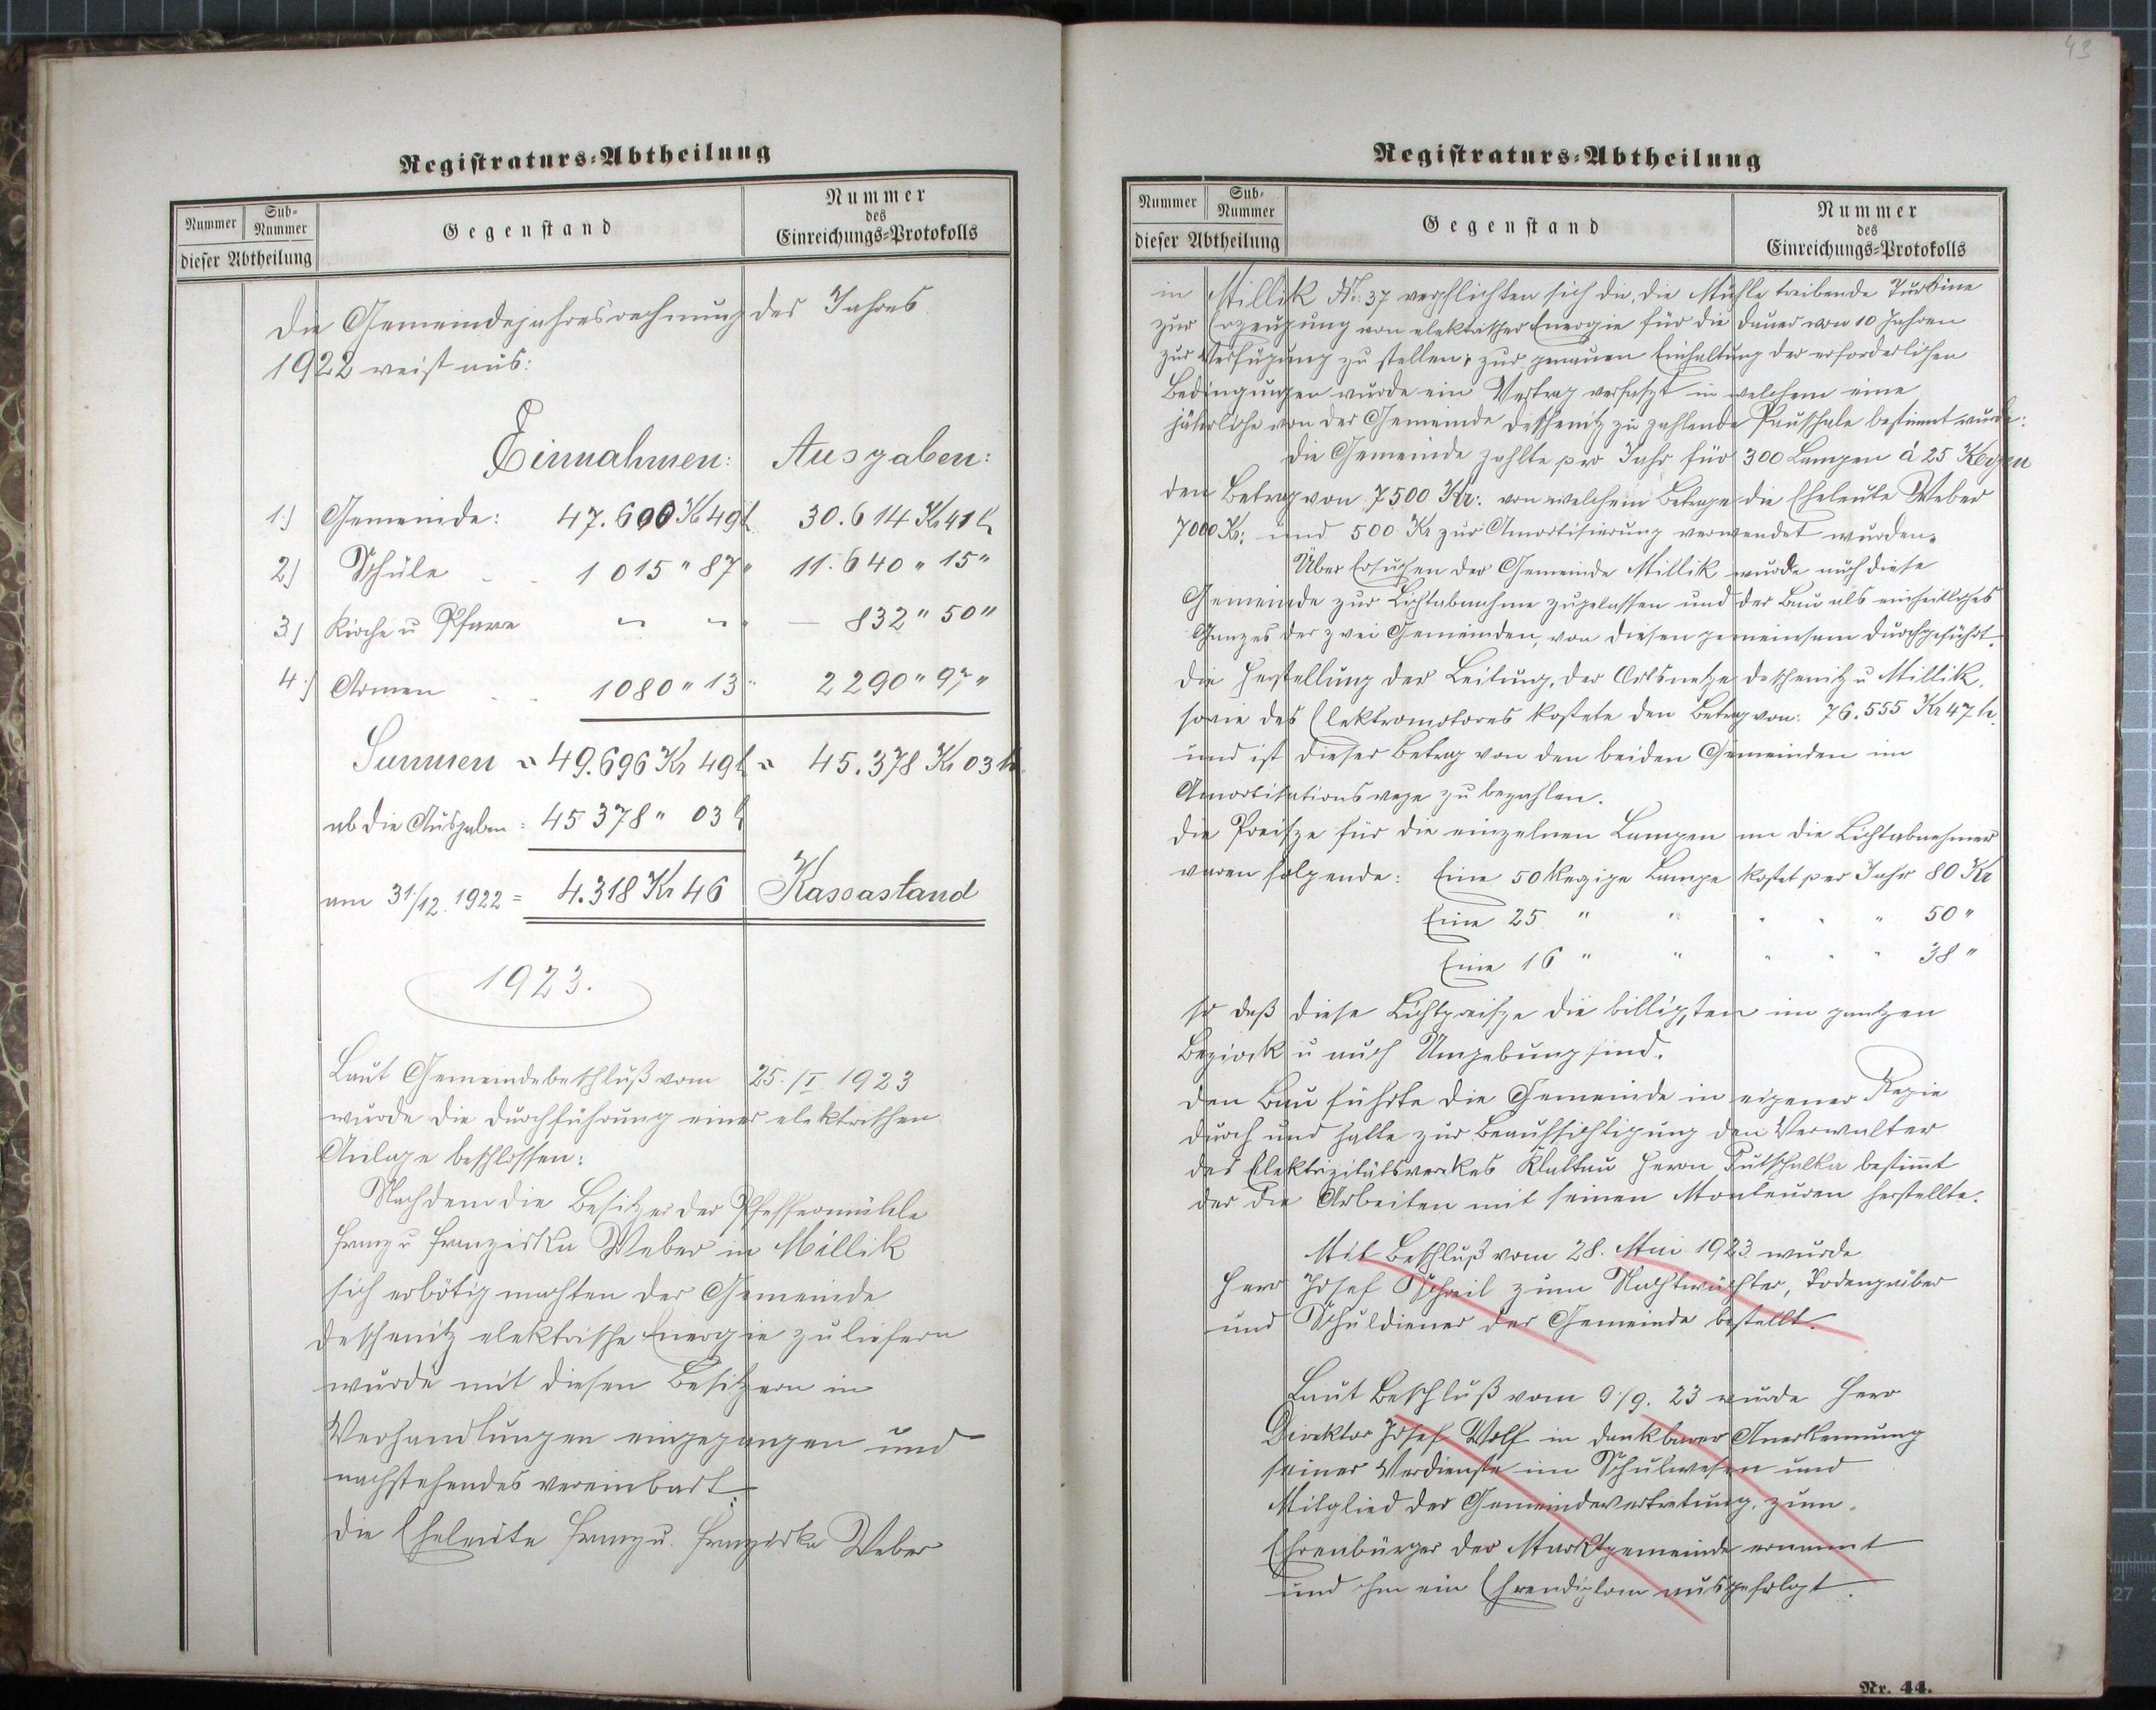 Registraturs-Abtheilung
Nummer
Sub-
Nummer
dieser Abtheilung
Gegenstand
Nummer
des
Einreichungs-Protokolls
Die Gemeindejahresrechnung des Jahres
1922 weist aus:
Einnahmen: Ausgaben:
1.) Gemeinde: 47.600 Kr 49 h 30.614 Kr 41 h
2) Schule 1 015 " 87 " 11.640 " 15 "
3) Kirche u Pfarre " " — 832 " 50 "
4.) Armen 1080 " 13 " 2290 " 97 "
Summen = 49.696 Kr 49 h = 45.378 Kr 03 h.
ab die Ausgaben = 45 378 " 03 h
am 31./12. 1922 = 4.318 Kr 46 Kassastand
1923.
Laut Gemeindebeschluß vom 25./I. 1923
wurde die Durchführung einer elektrischen
Anlage beschlossen:
Nachdem die Besitzer der Pfeffermühle
Franz u Franziska Weber in Millik
sich erbötig machten der Gemeinde
Deschenitz elektrische Energie zu liefern
wurde mit diesen Besitzern in
Verhandlungen eingegangen und
nachstehendes vereinbart.
Die Eheleute Franz u. Franziska Weber
43
Registraturs-Abtheilung
Nummer
Sub-
Nummer
dieser Abtheilung
Gegenstand
Nummer
des
Einreichungs-Protokolls
in Millik No: 37 verpflichten sich die, die Mühle treibende Turbine
zur Erzeugung von elektrischer Energie für die Dauer von 10 Jahren
zur Verfügung zu stellen; zur genauen Einhaltung der erforderlichen
Bedingungen wurde ein Vertrag verfaszt in welchem eine
jährliche von der Gemeinde Deschenitz zu zahlende Pauschale bestimmt wurde:
Die Gemeinde zahlte per Jahr für 300 Lampen á 25 Kerzen
den Betrag von 7500 Kr: von welchem Betrage die Eheleute Weber
7000 Kr: und 500 Kr zur Amortisierung verwendet wurden.
Über Ersuchen der Gemeinde Millik wurde auch diese
Gemeinde zur Lichtabnahme zugelassen und der Bau als einheitliches
Ganzes der zwei Gemeinden, von diesen gemeinsam durchgeführt.
Die Herstellung der Leitung, der Ortsnetze Deschenitz u Millik,
sowie des Elektromotores kostete den Betrag von: 76.555 Kr 47 h.
und ist dieser Betrag von den beiden Gemeinden im
Amortisationswege zu bezahlen.
Die Preisze für die einzelnen Lampen an die Lichtabnehmer
waren folgende: Eine 50 kerzige Lampe kostet per Jahr 80 Kr
Eine 25 " " " " " 50 "
Eine 16 " " " " " 38 "
so daß diese Lichtpreisze die billigsten im ganzen
Bezirk u auch Umgebung sind.
Den Bau führte die Gemeinde in eigener Regie
durch und hatte zur Beaufsichtigung den Verwalter
des Elektrizitätswerkes Klattau Herrn Putschalka bestimt
der die Arbeiten mit seinen Monteuren herstellte.
Mit Beschluß vom 28. Mai 1923 wurde
Herr Josef zum Nachtwächter, Todengräber
und Schuldiener der Gemeinde bestellt.
Laut Beschluß vom 9./9. 23 wurde Herr
Direktor Josef Wolf in dankbarer Anerkennung
seiner Verdienste im Schulwesen und
Mitglied der Gemeindevertretung, zum
Ehrenbürger der Marktgemeinde ernannt
und ihm ein Ehrendiplom ausgefolgt.
Nr. 44.
27